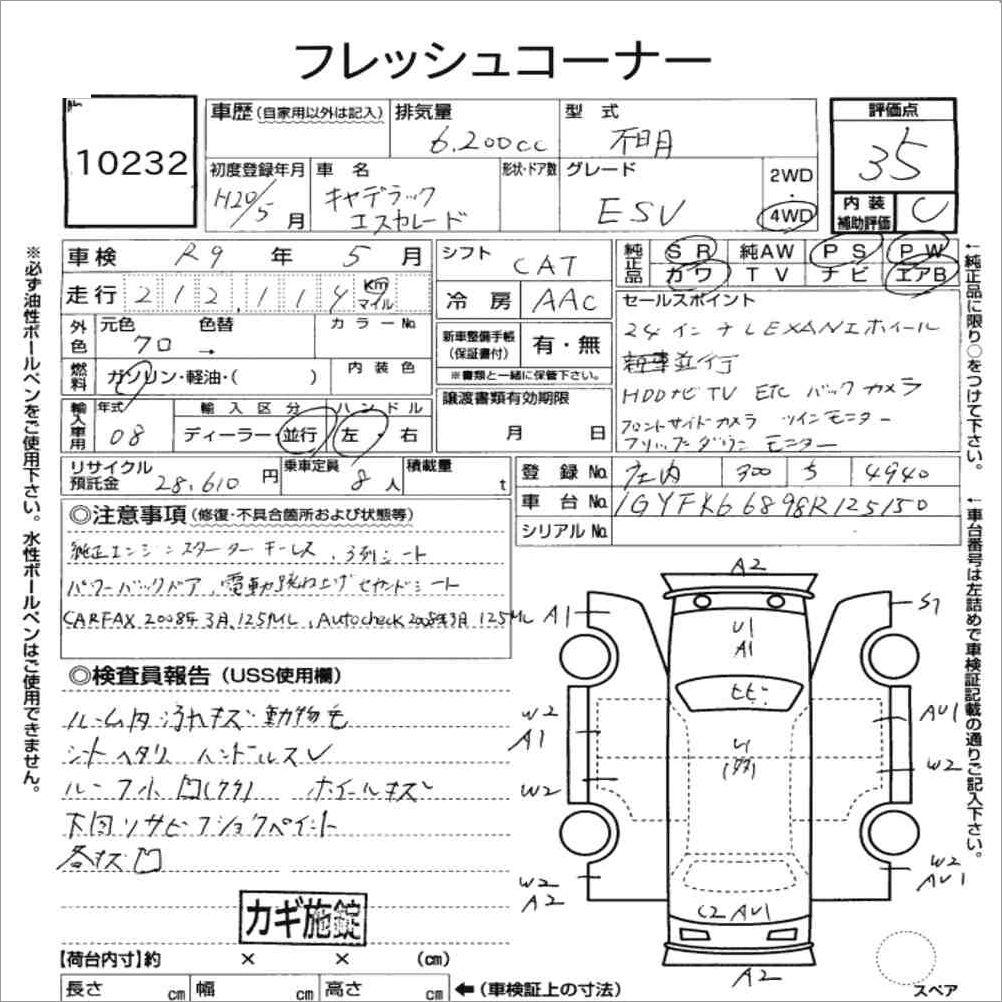 フレッシュコーナー
10232
車歴(自家用以外は記入)
排気量
6.200cc
型式
不明
評価点
35
初度登録年月
H20/5月
車名
キャデラック
エスカレード
形状・ドア数
グレード
ESV
2WD
・
4WD
内装
補助評価
C
車検 R9年 5月
走行 212,114 km マイル
シフト
CAT
冷房
AAC
純正品
SR 純AW PS PW
カワ TV ナビ エアB
外色
元色 70 →
色替
カラーNo.
内装色
燃料
ガソリン・軽油・( )
新車整備手帳
(保証書付)
有・無
※書類と一緒に保管下さい。
譲渡書類有効期限
月 日
セールスポイント
24インチ LEXANIホイール
新車並行
HDDナビ TV ETC バックカメラ
フロントサイドカメラ ツインモニター
フリップダウンモニター
輸入車用
年式
08
輸入区分
ディーラー・並行
ハンドル
左・右
リサイクル
預託金 28,610円
乗車定員
8人
積載量
t
登録No. 庄内 300 う 4940
車台No. 1GYFK66898R125150
シリアルNo.
◎注意事項(修復・不具合箇所および状態等)
純正エンジンスターターキーレス、3列シート
パワーバックドア、電動跳ね上げセカンドシート
CARFAX 2008年3月,125ML, Autocheck 2008年3月 125ML
◎検査員報告(USS使用欄)
ルーム内汚れキズ動物毛
シートヘタリ ハンドルスレ
ルーフ小凹(779) ホイールキズ
下回りサビフショクペイント
各キズ凹
カギ施錠
【荷台内寸】約 × × (cm)
長さ cm 幅 cm 高さ cm
←(車検証上の寸法)
※必ず油性ボールペンをご使用下さい。水性ボールペンはご使用できません。
←純正品に限り○をつけて下さい。
←車台番号は左詰めで車検証記載の通りご記入下さい。
A2
A1
S7
U1
A1
ヒビ
W2
A1
AU1
W2
W2
W2
AU1
W2
A2
C2 AU1
A2
スペア